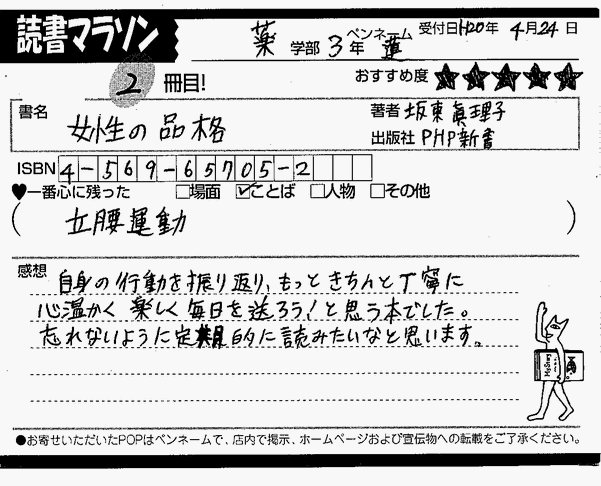 読書マラソン
薬 学部 3 年 ペンネーム 蓮 受付日 H20年 4月24日
2 冊目!
おすすめ度 ★★★★★
書名 女性の品格
著者 坂東眞理子
出版社 PHP新書
ISBN 4-569-65705-2
♥一番心に残った □場面 ☑ことば □人物 □その他
( 立腰運動 )
感想 自身の行動を振り返り、もっときちんと丁寧に
心温かく楽しく毎日を送ろう!と思う本でした。
忘れないように定期的に読みたいなと思います。
●お寄せいただいたPOPはペンネームで、店内で掲示、ホームページおよび宣伝物への転載をご了承ください。